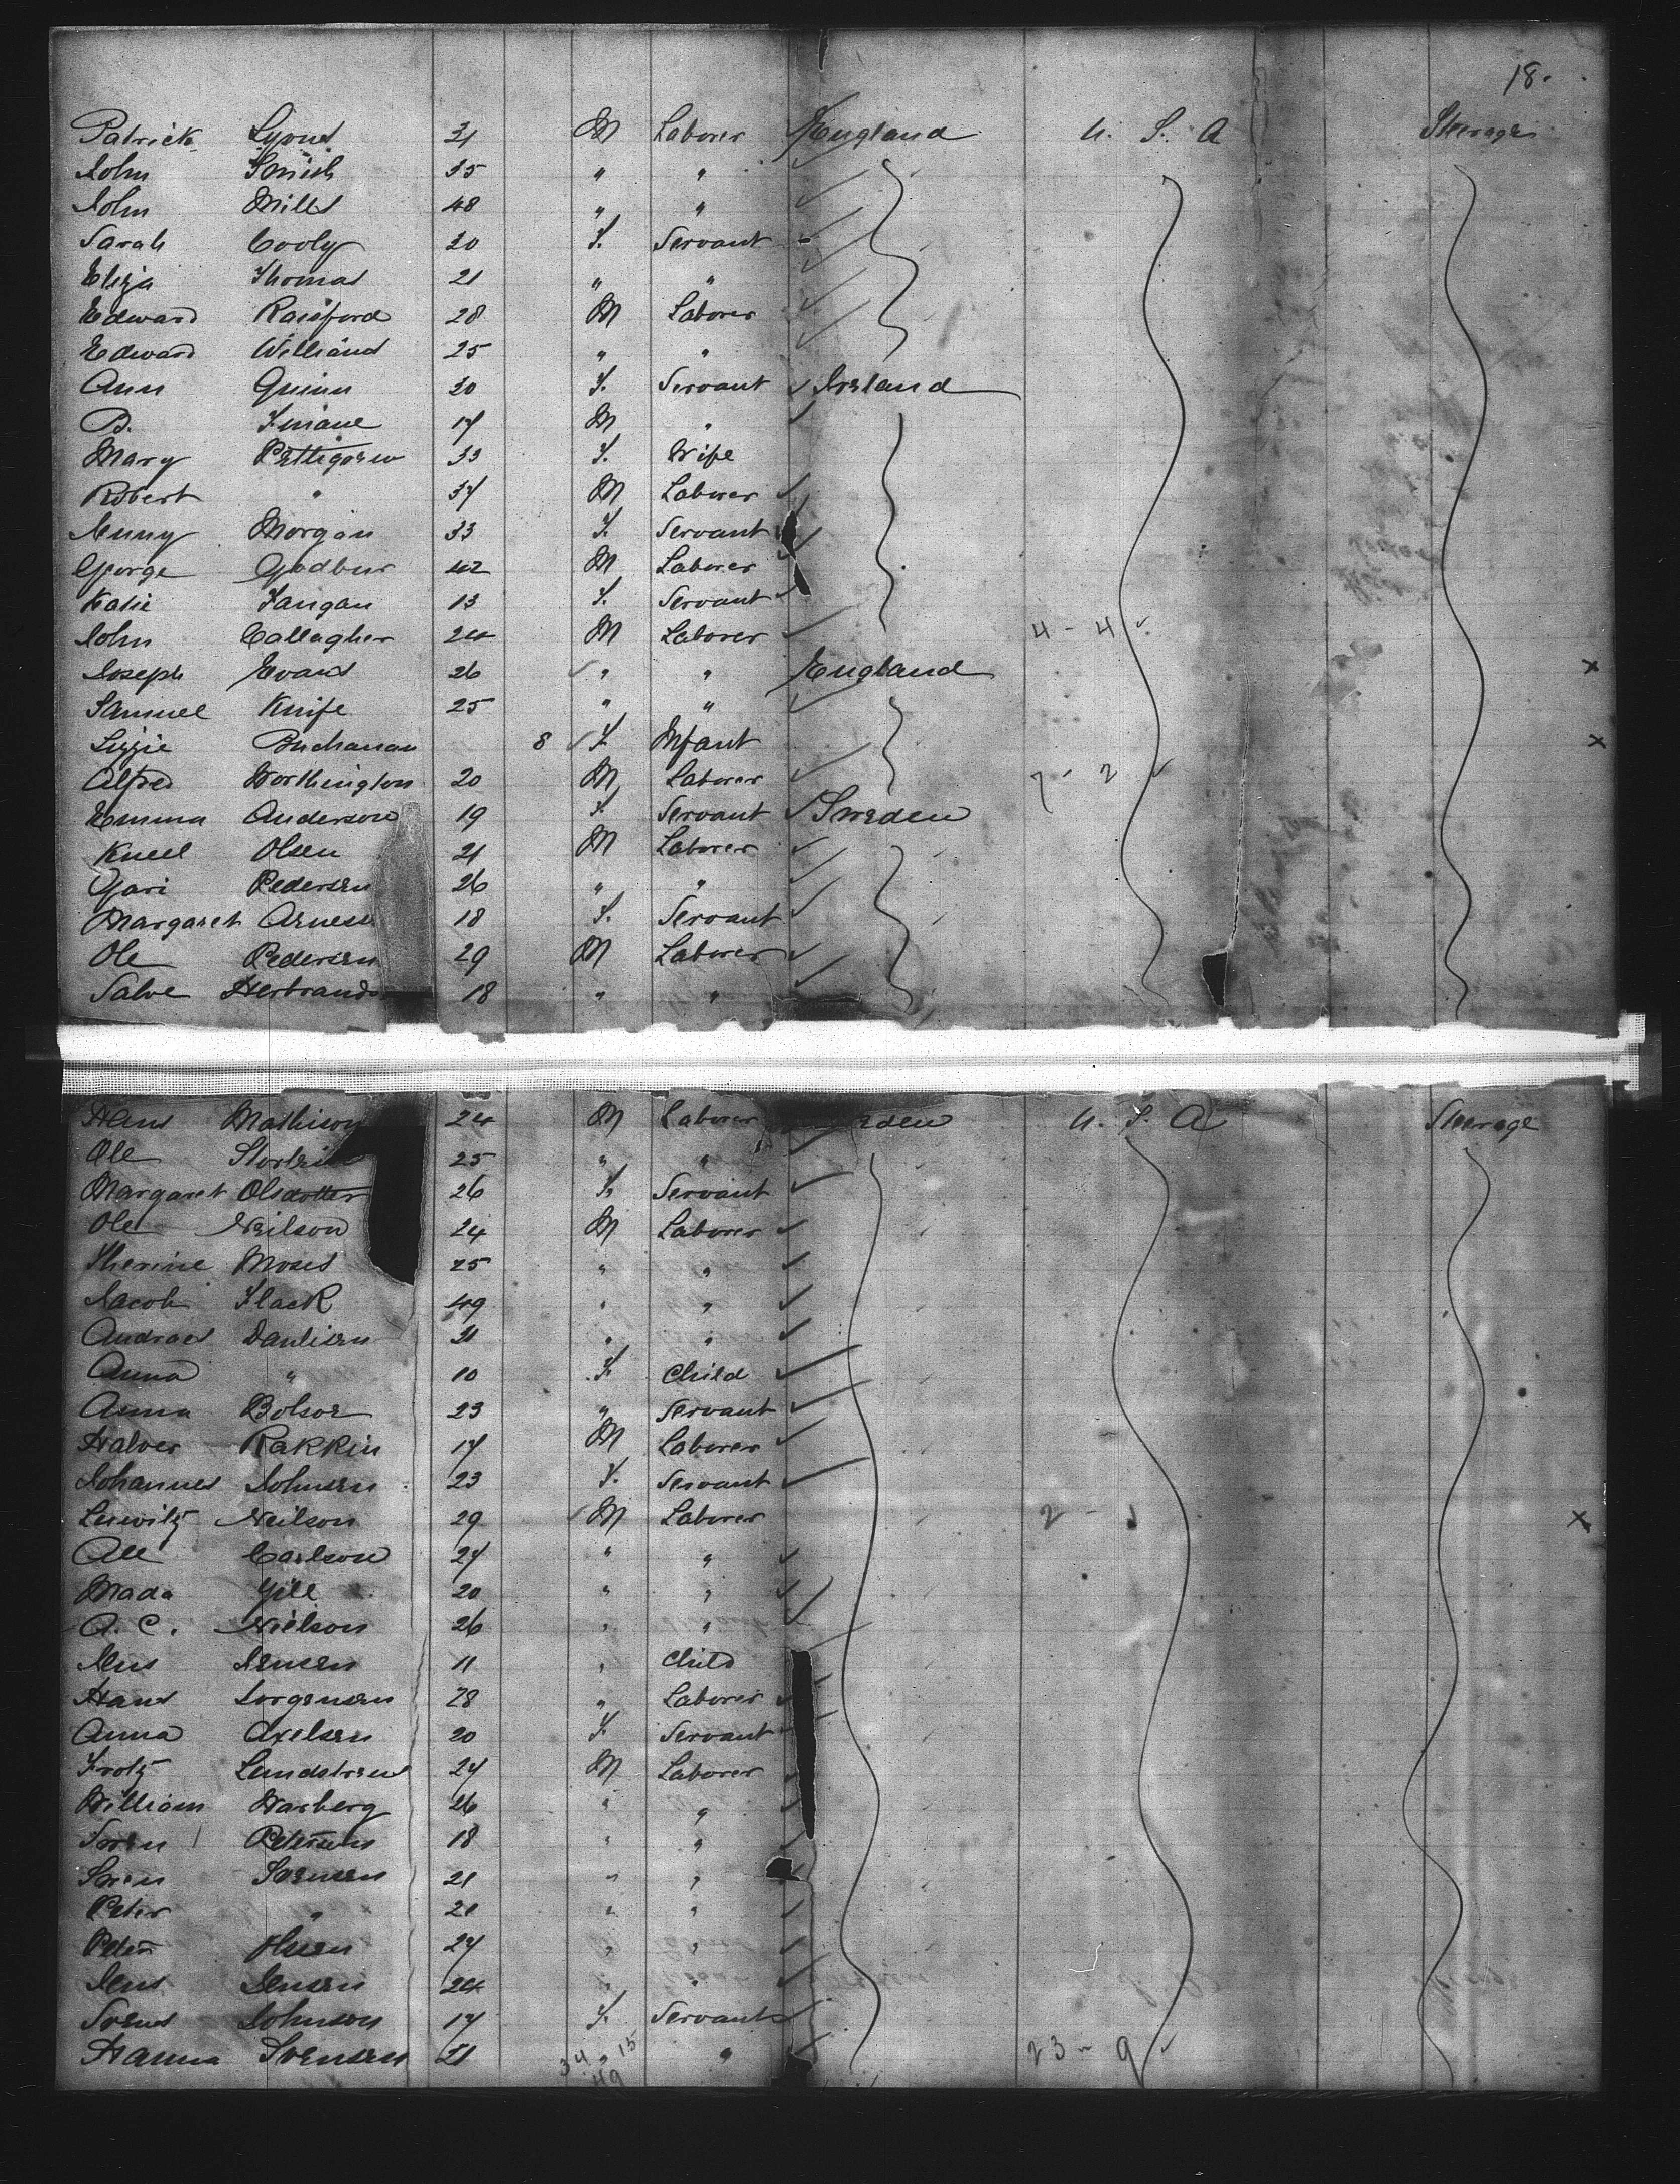 18.
Patrick Lyons 31 M Laborer England U. S. A Steerage
John Smith 35 " "
John Mills 48 " "
Sarah Cooly 20 F. Servant
Eliza Thomas 21 " "
Edward Raisford 28 M Laborer
Edward Williams 25 " "
Ann Quinn 20 F. Servant Ireland
B. 17 M "
Mary Pettigrew 33 F. Wife
Robert " 37 M Laborer
Jenny Morgan 33 F. Servant
George Godbur 42 M Laborer
Katie Fangan 13 F. Servant
John Callagher 24 M Laborer 4 - 4
Joseph Evans 26 " " England x
Samuel Knife 25 " "
Lizzie Buchanan 8 F Infant x
Alfred Worthington 20 M Laborer 7 - 2
Emma Anderson 19 F. Servant Sweden
Olsen 21 M Laborer
Gari Pedersen 26 " "
Margaret Arness 18 F. Servant
Ole Pedersen 29 M Laborer
Salve Herbrands 18 " "
Hans Mathison 24 M Laborer eden U. S. A Steerage
Ole 25 " "
Margaret Olsdotter 26 F. Servant
Ole Neilson 24 M Laborer
Moses 25 " "
Jacob Flack 49 " "
Andreas Danlisen 31 " "
Anna " 10 F. Child
Anna Bolsoe 23 " Servant
Halver Rakkin 17 M Laborer
Johannes Johnsen 23 F. Servant
Neilson 29 M Laborer 2 - 1 x
Carlson 27 " "
Mada Gill 20 " "
A. C. Nielson 26 " "
Jens Jensen 11 " Child
Hans Jorgensen 28 " Laborer
Anna Axelsen 20 F. Servant
Lundstrew 27 M Laborer
William Warberg 26 " "
Soren Petersens 18 " "
Sorensen 21 " "
Peter " 21 " "
Peter Olsen 27 " "
Jens Jensen 24 " "
Svens Johnson 17 F. Servant
Hanna Svensen 21 " 23 - 9
34 , 15
49